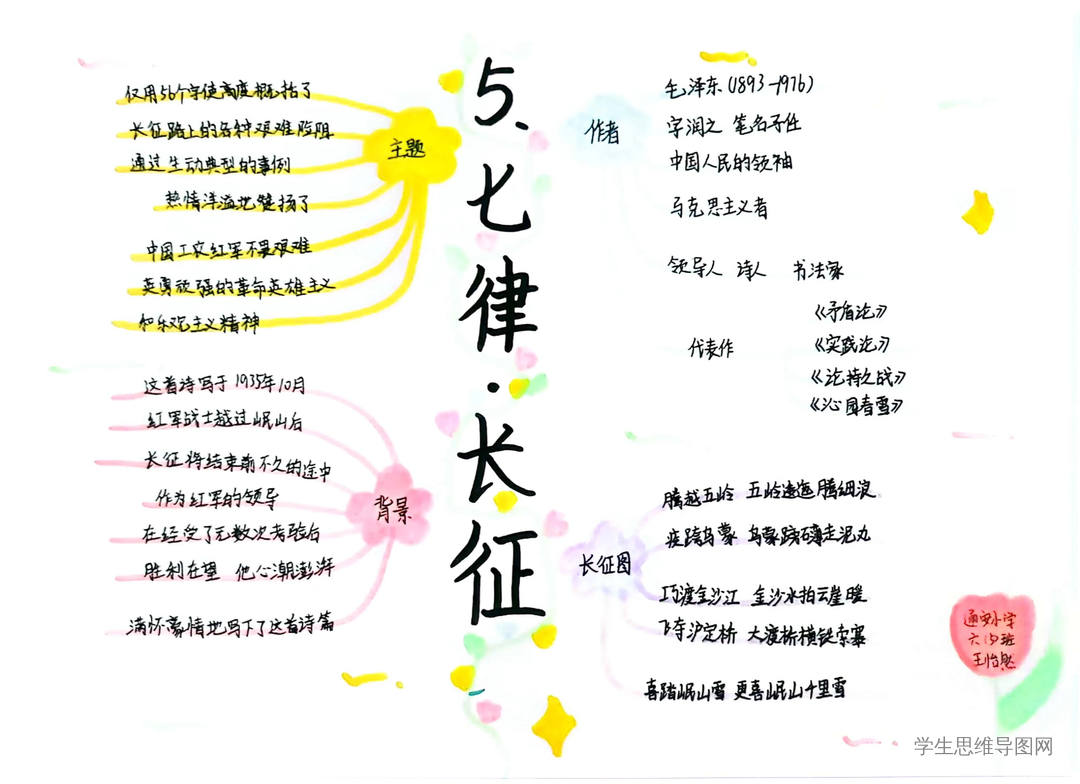 5、七律·长征
主题
仅用56个字使高度概括了
长征路上的各种艰难险阻
通过生动典型的事例
热情洋溢地赞扬了
中国工农红军不畏艰难
英勇顽强的革命英雄主义
和乐观主义精神
背景
这首诗写于1935年10月
红军战士越过岷山后
长征将结束前不久的途中
作为红军的领导
在经受了无数次考验后
胜利在望 他心潮澎湃
满怀豪情地写下了这首诗篇
作者
毛泽东(1893-1976)
字润之 笔名子任
中国人民的领袖
马克思主义者
领导人 诗人 书法家
代表作
《矛盾论》
《实践论》
《论持久战》
《沁园春雪》
长征图
腾越五岭 五岭逶迤腾细浪
疾踏乌蒙 乌蒙磅礴走泥丸
巧渡金沙江 金沙水拍云崖暖
飞夺泸定桥 大渡桥横铁索寒
喜踏岷山雪 更喜岷山千里雪
通安小学
六(5)班
王怡然
学生思维导图网